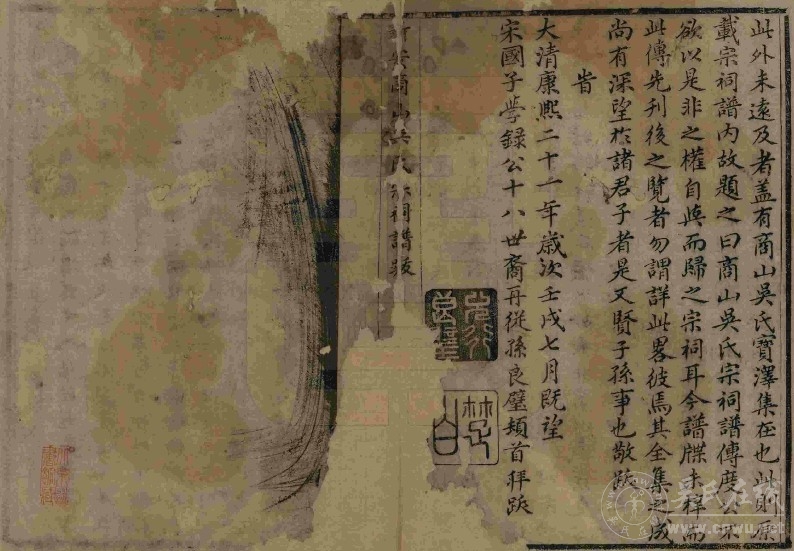 此外未遠及者盖有商山吳氏寳澤集在也此則原
載宗祠譜内故題之曰商山吳氏宗祠譜傳庶公不
欲以是非之權自與而歸之宗祠耳今譜牒未梓而
此傳先刊後之覽者勿謂詳此畧彼焉其全集之成
尚有深望於諸君子者是又賢子孫事也敬跋
旹
大清康熈二十一年歲次壬戌七月既望
宋國子學録公十八世裔再從孫良璧頓首拜跋
商山吳氏宗祠譜跋
吴氏在线
www.cnwu.net